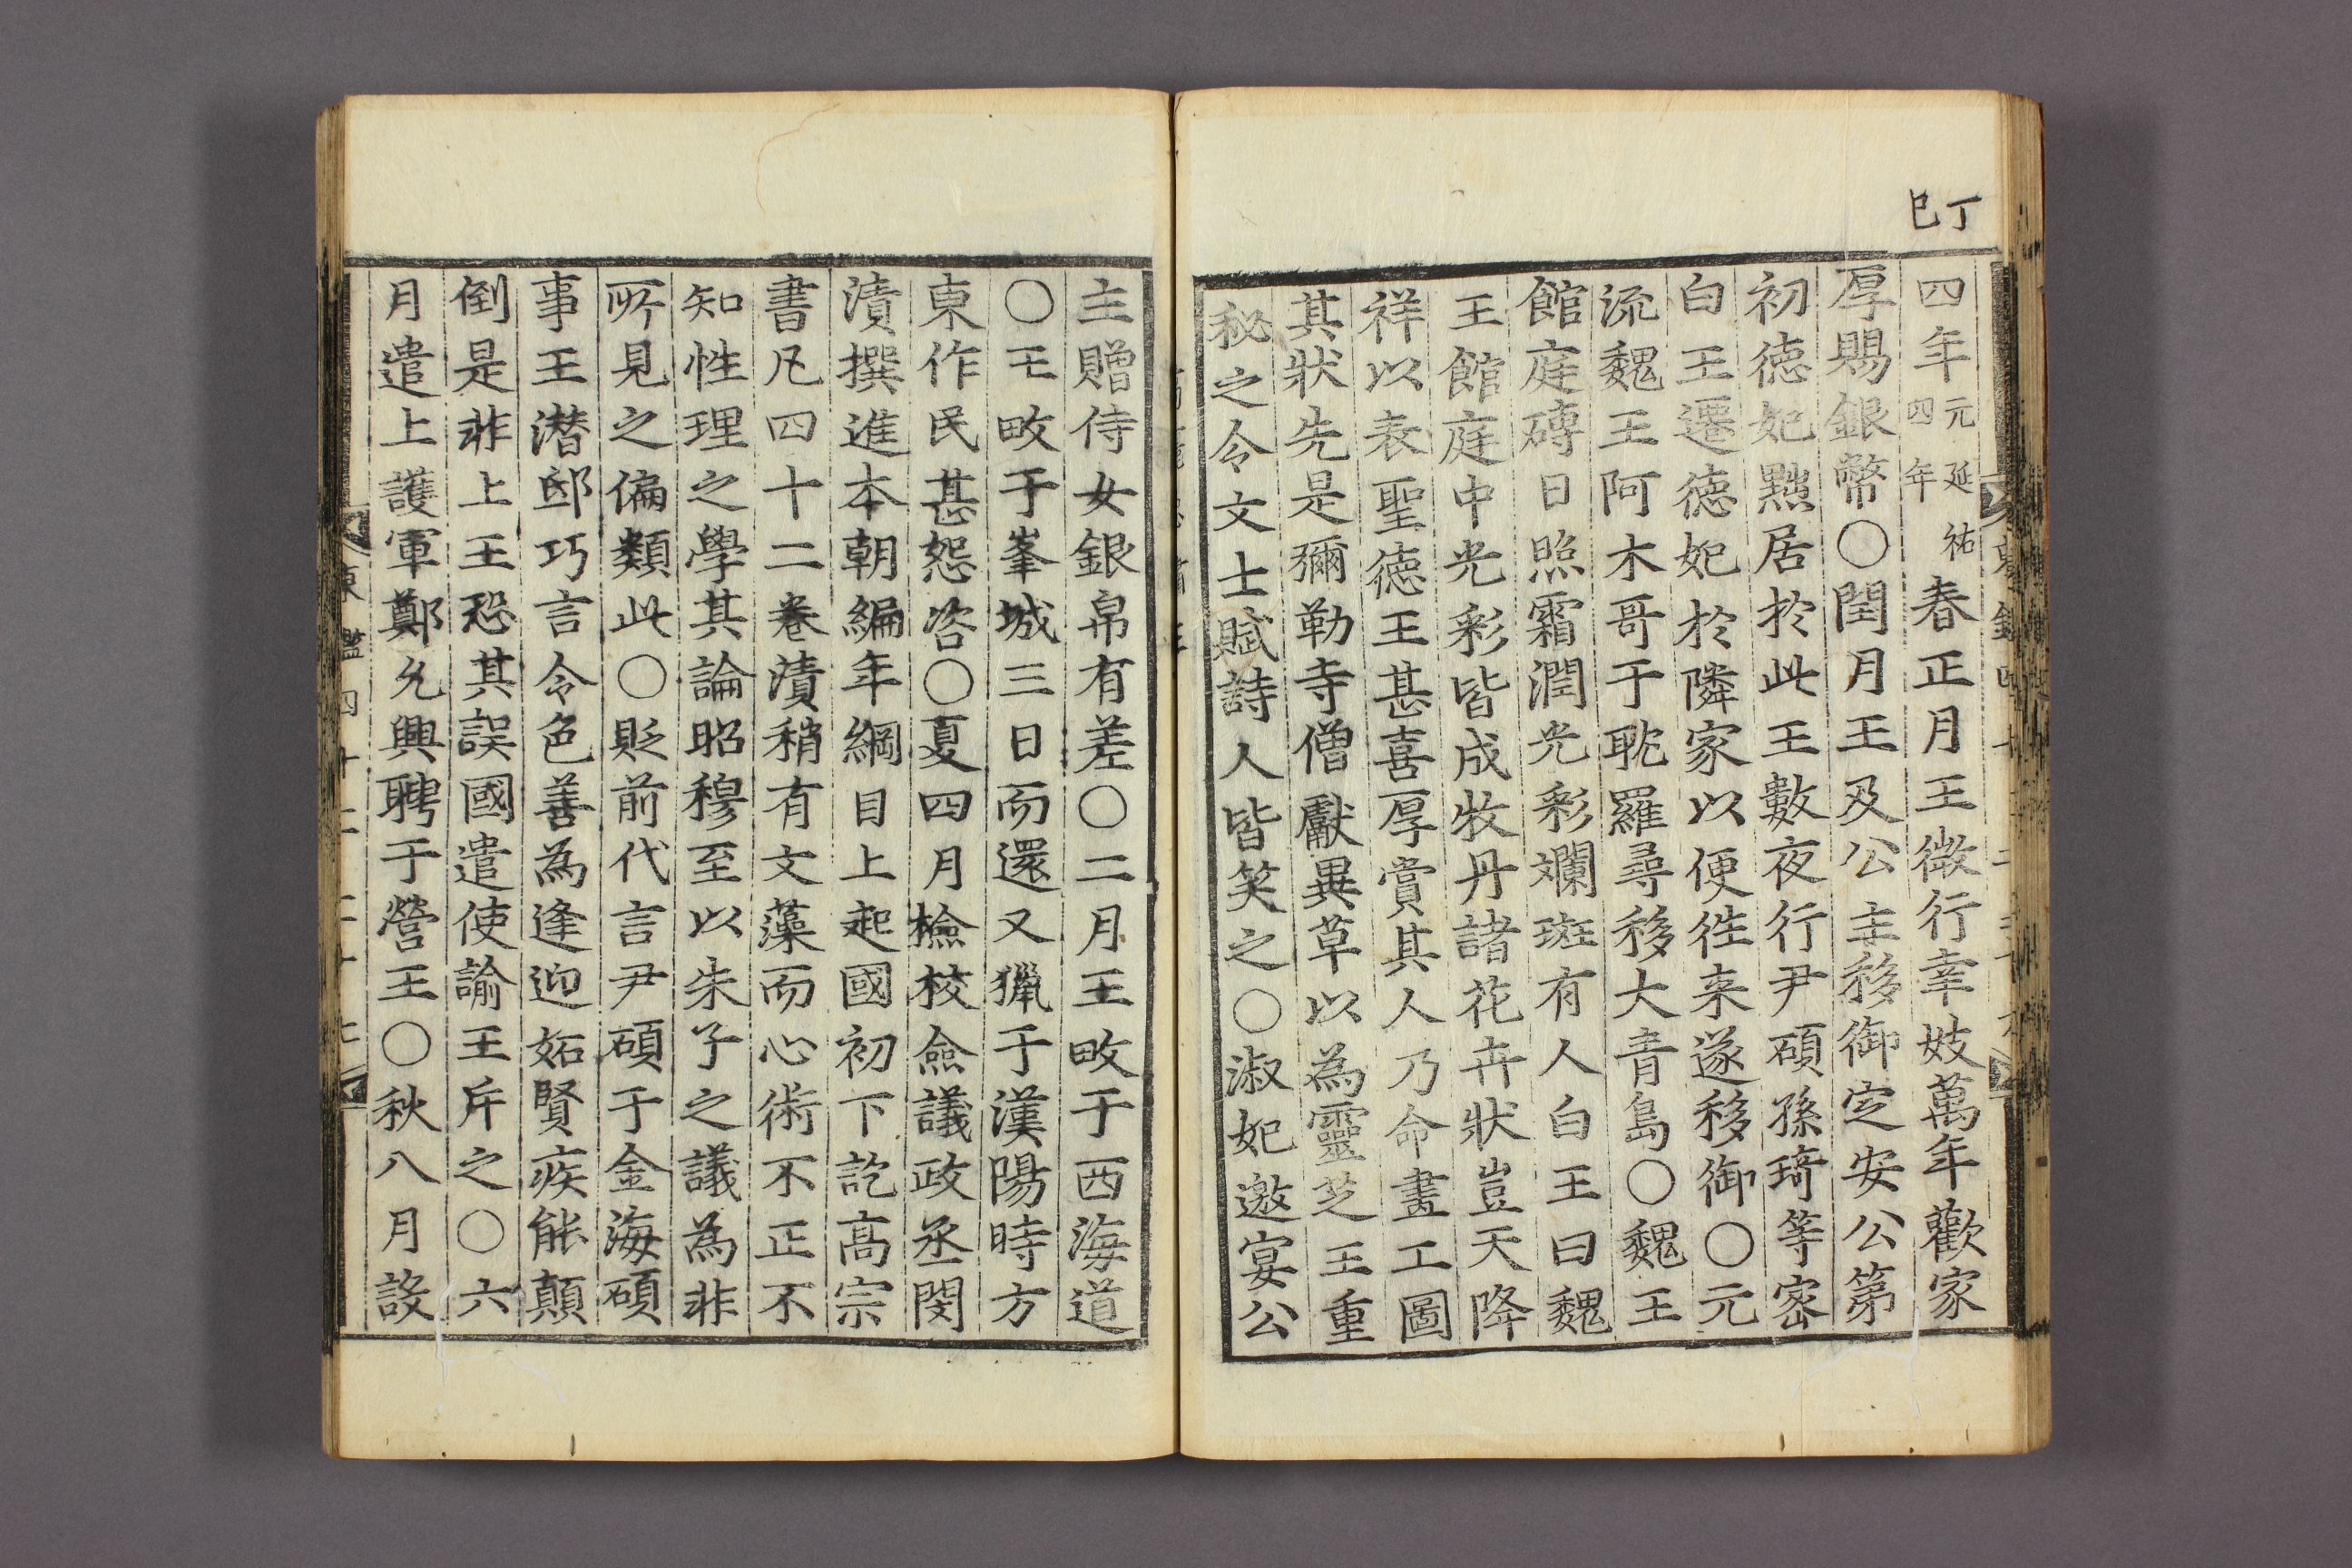 丁巳
四年元延祐四年春正月王微行幸妓萬年歡家
厚賜銀幣○閏月王及公主移御定安公第
初德妃黜居於此王數夜行尹碩孫琦等密
白王遷德妃於隣家以便徃来遂移御○元
流魏王阿木哥于耽羅尋移大青島○魏王
館庭磚日照霜潤光彩斕斑有人白王曰魏
王館庭中光彩皆成牧丹諸花卉狀豈天降
祥以表聖德王甚喜厚賞其人乃命畫工圖
其狀先是彌勒寺僧獻異草以為靈芝王重
秘之令文士賦詩人皆笑之○淑妃邀宴公
主贈侍女銀帛有差○二月王畋于西海道
○王畋于峯城三日而還又獵于漢陽時方
東作民甚怨咨○夏四月檢校僉議政丞閔
漬撰進本朝編年綱目上起國初下訖高宗
書凡四十二卷漬稍有文藻而心術不正不
知性理之學其論昭穆至以朱子之議為非
所見之偏類此○貶前代言尹碩于金海碩
事王潛邸巧言令色善為逢迎妬賢疾能顛
倒是非上王恐其誤國遣使諭王斥之○六
月遣上護軍鄭允興聘于營王○秋八月設
東鑑四十二 二十七